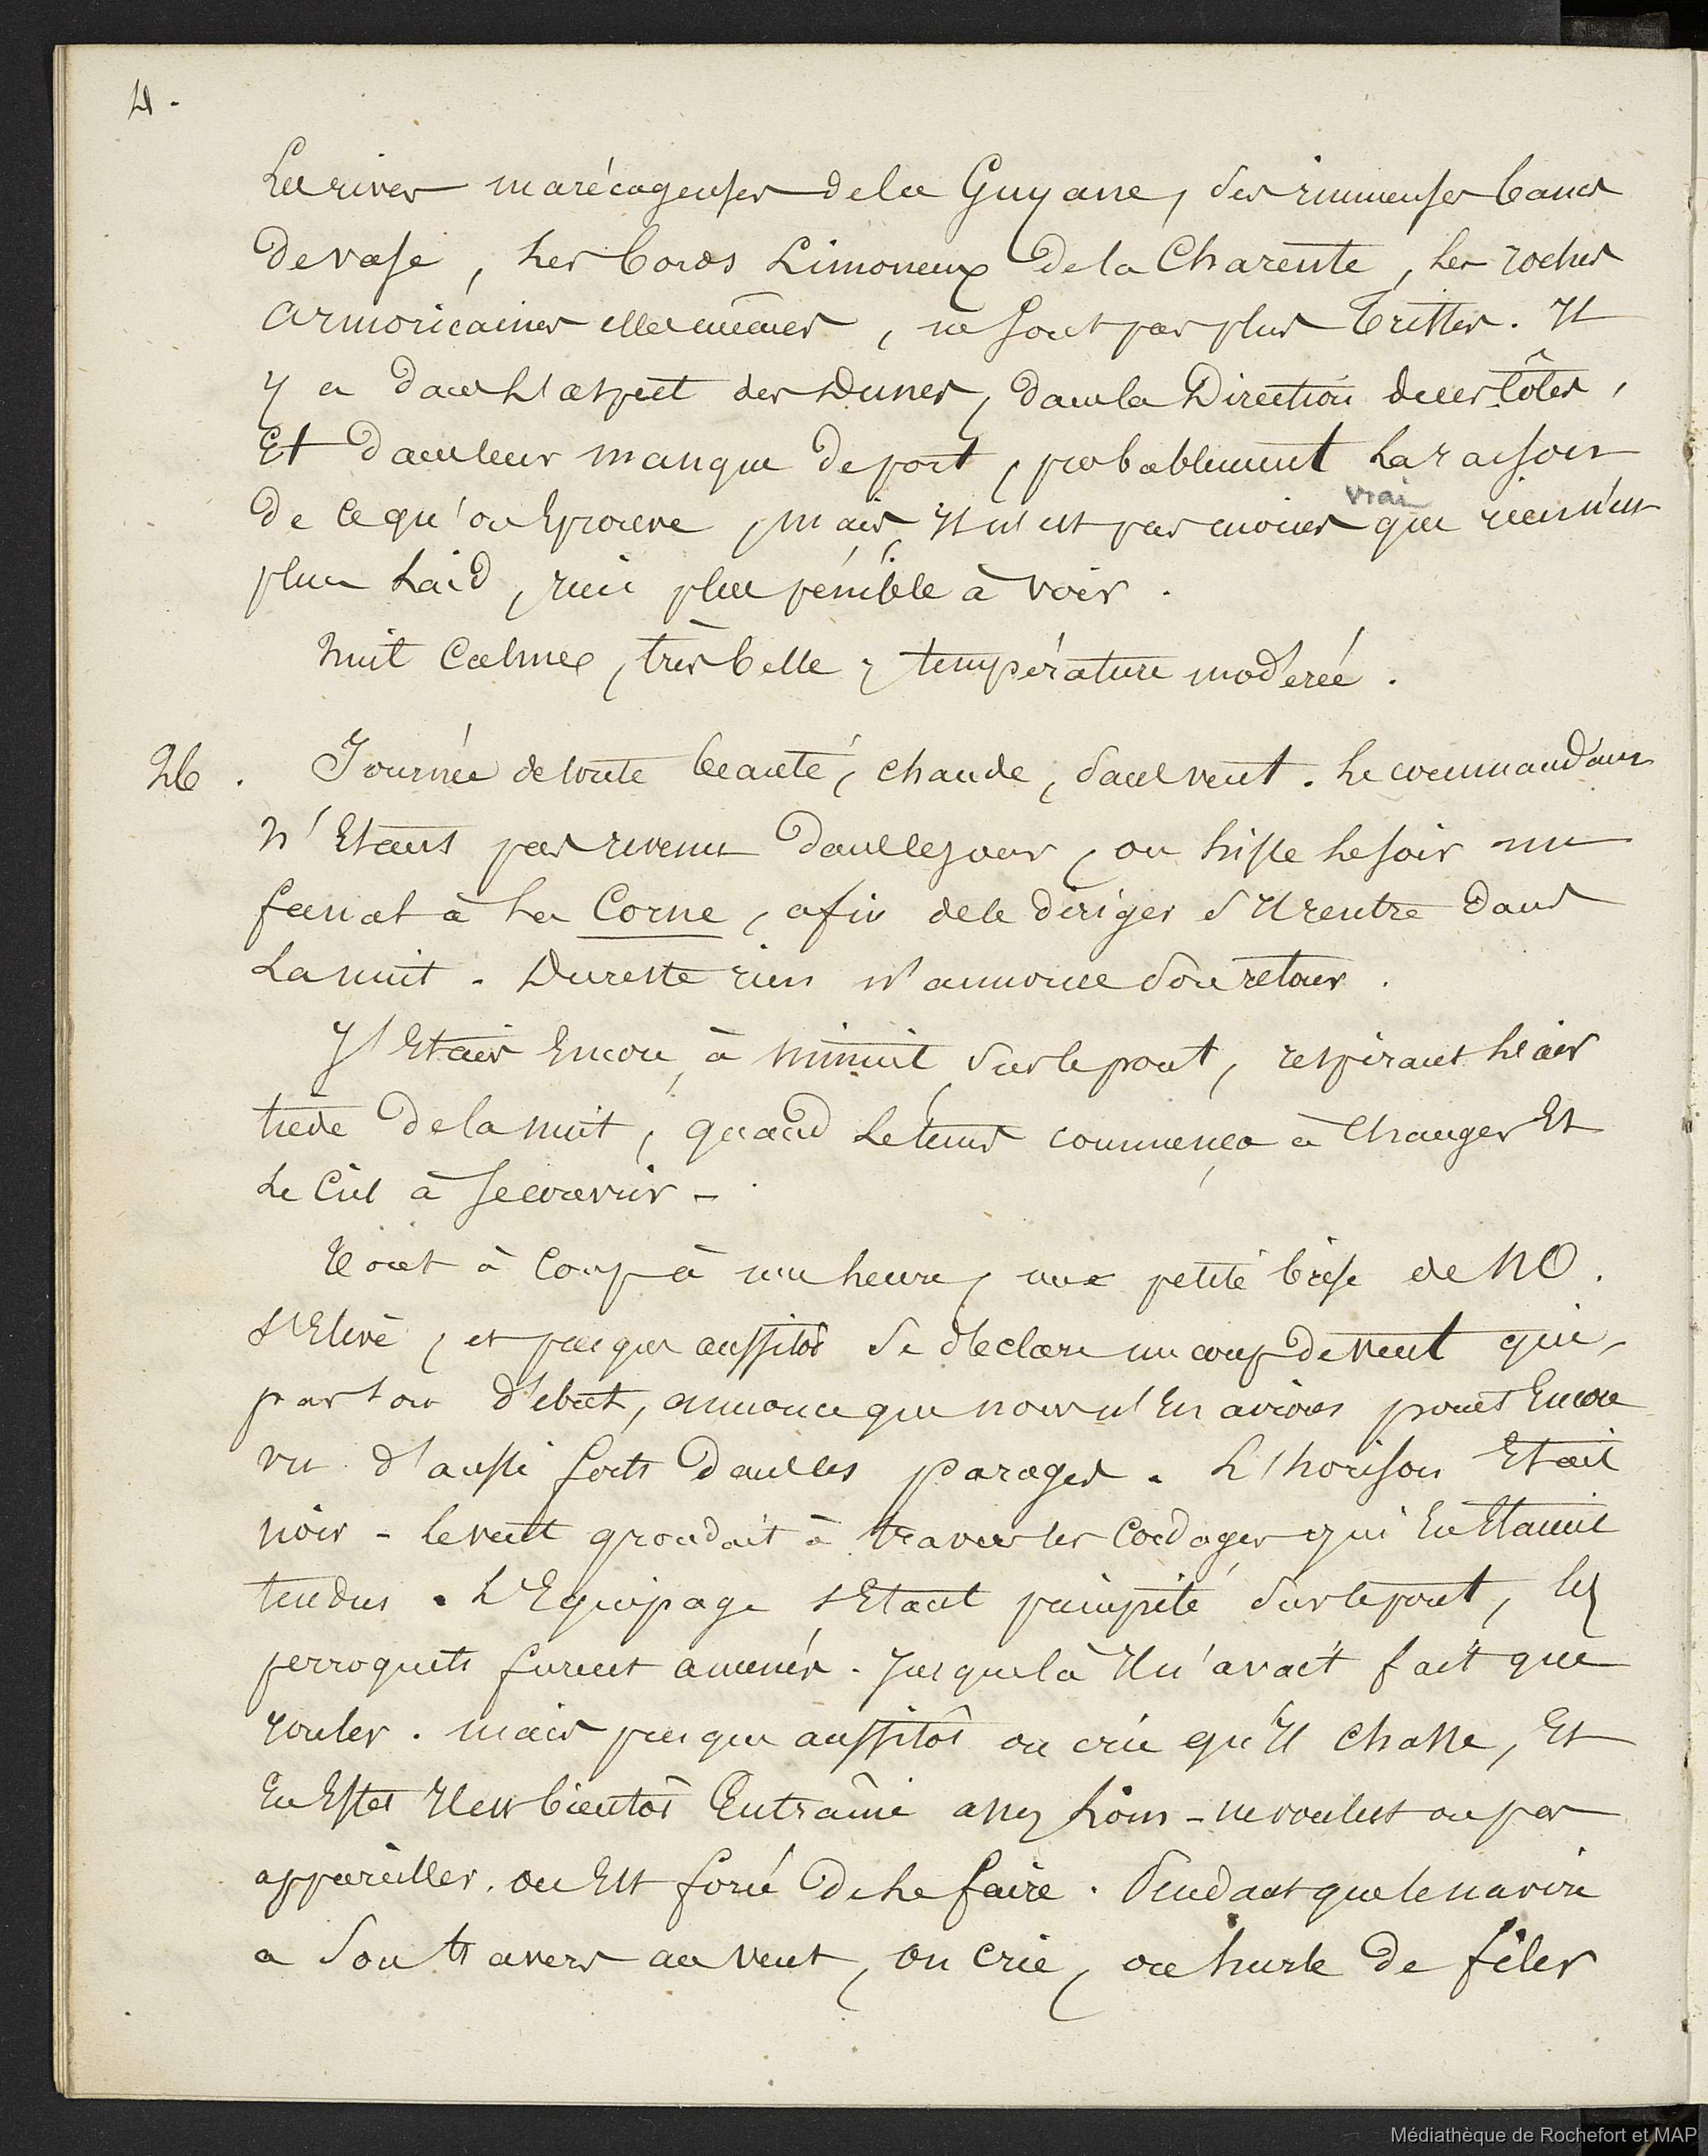 4.
Les rives marécageuses de la Guyane, ses immenses bancs
de vase, les bords limoneux de la Charente, les roches
armoricaines elles mêmes, ne sont pas plus tristes. Il
y a dans l'aspect des dunes, dans la direction de ces côtes,
Et dans leur manque de port, probablement la raison
vrai
de ce qu'on Eprouve, mais il n'est pas moins que rien n'est
plus laid, rien plus pénible à voir.
Nuit calme, très belle, température modérée.
26. Journée de toute beauté, chaude, sans vent. Le commandant
n'Etant pas revenu dans le jour, on hisse le soir un
fanal à la Corne, afin de le diriger s'il rentre dans
la nuit. Du reste rien n'annonce son retour.
J'Etais Encore à minuit sur le pont, respirant l'air
tiède de la nuit, quand le tems commença à changer Et
le Ciel à se couvrir -
Tout à coup à une heure, une petite brise de NO.
s'Elève, et presque aussitôt se déclare un coup de vent qui,
par son début, annonce que nous n'En avions point Encore
vu d'aussi forts dans ces parages. L'horison Etait
noir - le vent grondait à travers les cordages qui En Etaient
tendus. L'Equipage s'Etant précipité sur le pont, les
perroquets furent amenés. Jusque là il n'avait fait que
rouler. mais presque aussitôt on crie qu'il chasse, Et
En Effet il est bientôt Entraîné assez loin - ne voulut on pas
appareiller, on Est forcé de le faire. Pendant que le navire
a son travers au vent, on crie, on hurle de filer
Médiathèque de Rochefort et MAP